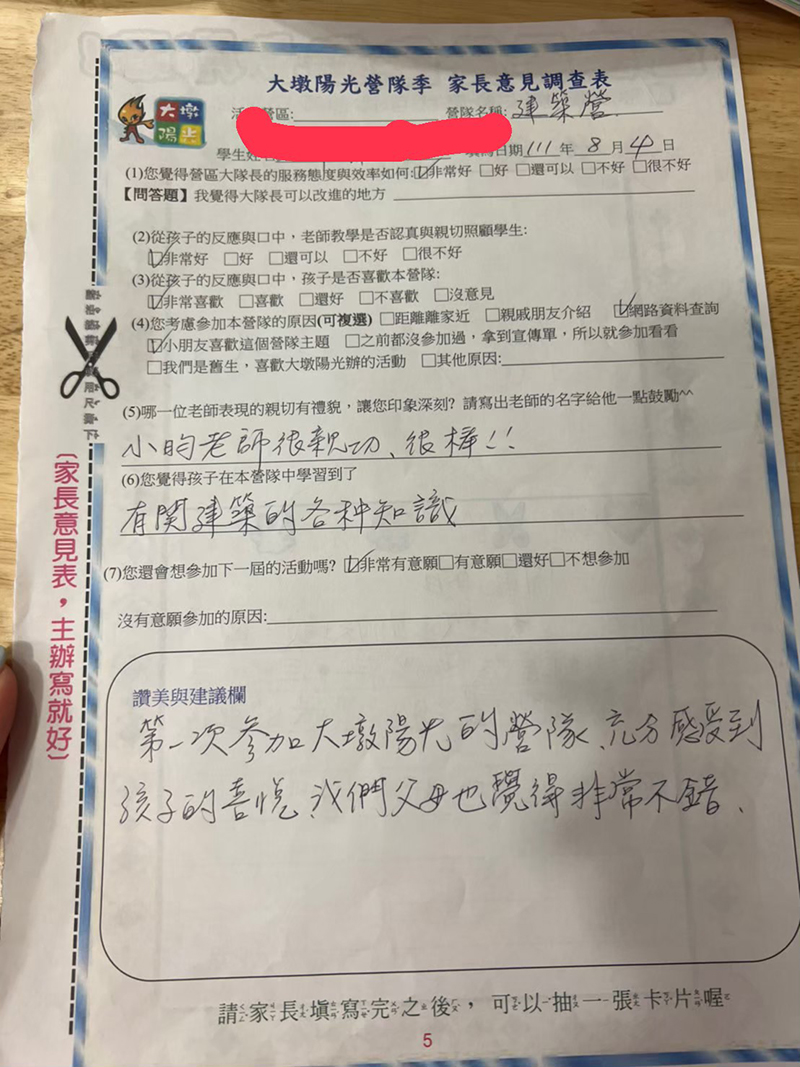 大墩陽光營隊季 家長意見調查表
大墩
陽光
活 營區: 營隊名稱: 建築營.
學生姓名 填寫日期111年8月4日
(1)您覺得營區大隊長的服務態度與效率如何:☑非常好 □好 □還可以 □不好 □很不好
【問答題】我覺得大隊長可以改進的地方
(2)從孩子的反應與口中,老師教學是否認真與親切照顧學生:
☑非常好 □好 □還可以 □不好 □很不好
(3)從孩子的反應與口中,孩子是否喜歡本營隊:
☑非常喜歡 □喜歡 □還好 □不喜歡 □沒意見
(4)您考慮參加本營隊的原因(可複選) □距離離家近 □親戚朋友介紹 ☑網路資料查詢
☑小朋友喜歡這個營隊主題 □之前都沒參加過,拿到宣傳單,所以就參加看看
□我們是舊生,喜歡大墩陽光辦的活動 □其他原因:
(5)哪一位老師表現的親切有禮貌,讓您印象深刻? 請寫出老師的名字給他一點鼓勵^^
小昀老師很親切、很棒!!
(6)您覺得孩子在本營隊中學習到了
有関建築的各种知識
(7)您還會想參加下一屆的活動嗎? ☑非常有意願□有意願□還好□不想參加
沒有意願參加的原因:
讚美與建議欄
第一次參加大墩陽光的營隊、充分感受到
孩子的喜悅、我們父母也覺得非常不錯、
請家長填寫完之後,可以抽一張卡片喔
5
〔家長意見表,主辦寫就好〕